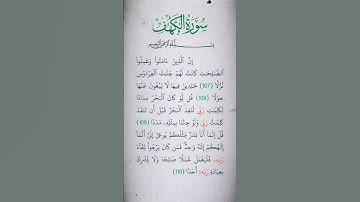 سُورَةُ الْكَهْفِ
بِسْمِ اللَّهِ الرَّحْمَٰنِ الرَّحِيمِ
إِنَّ الَّذِينَ ءَامَنُوا وَعَمِلُوا
الصَّٰلِحَٰتِ كَانَتْ لَهُمْ جَنَّٰتُ الْفِرْدَوْسِ
نُزُلًا (107) خَٰلِدِينَ فِيهَا لَا يَبْغُونَ عَنْهَا
حِوَلًا (108) قُل لَّوْ كَانَ الْبَحْرُ مِدَادًا
لِّكَلِمَٰتِ رَبِّي لَنَفِدَ الْبَحْرُ قَبْلَ أَن تَنفَدَ
كَلِمَٰتُ رَبِّي وَلَوْ جِئْنَا بِمِثْلِهِ مَدَدًا (109)
قُلْ إِنَّمَا أَنَا بَشَرٌ مِّثْلُكُمْ يُوحَىٰ إِلَيَّ أَنَّمَا
إِلَٰهُكُمْ إِلَٰهٌ وَٰحِدٌ فَمَن كَانَ يَرْجُوا لِقَاءَ
رَبِّهِ فَلْيَعْمَلْ عَمَلًا صَٰلِحًا وَلَا يُشْرِكْ
بِعِبَادَةِ رَبِّهِ أَحَدًا (110)